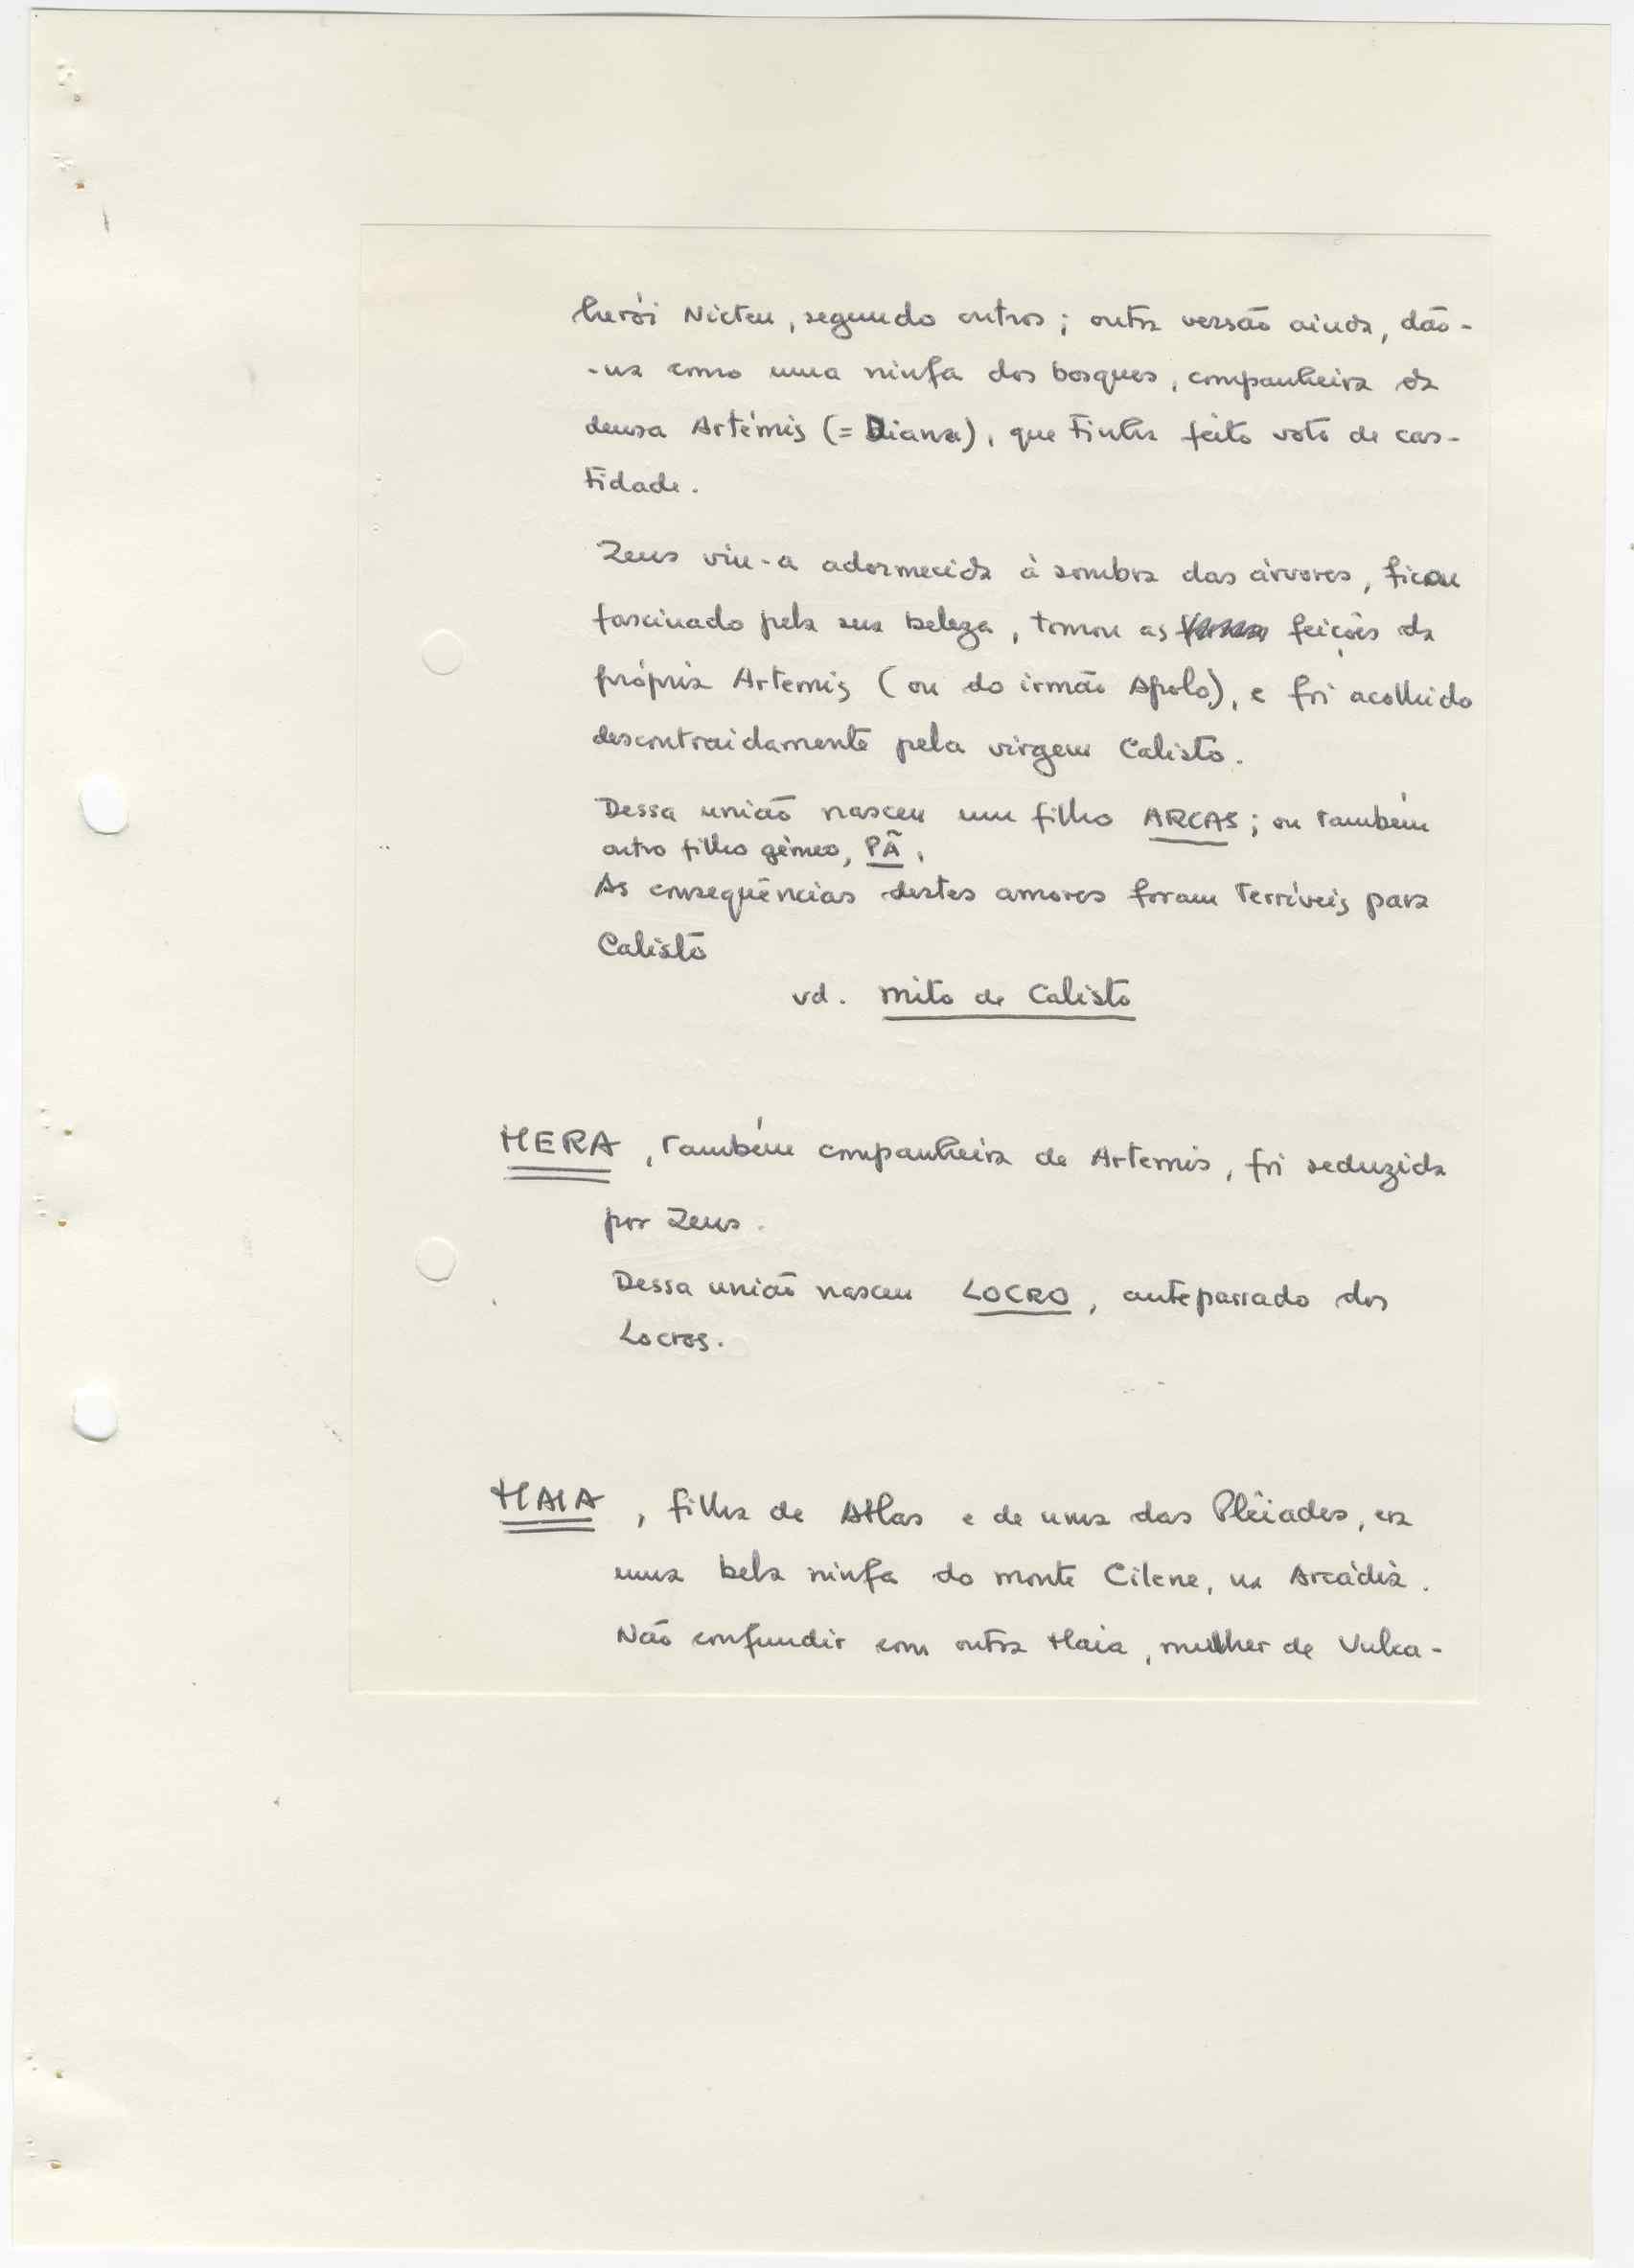 herói Nicteu, segundo outros; outra versão ainda, dão-
-na como uma ninfa dos bosques, companheira da
deusa Artémis (= Diana), que tinha feito voto de cas-
tidade.
Zeus viu-a adormecida à sombra das árvores, ficou
fascinado pela sua beleza, tomou as feições da
própria Artemis (ou do irmão Apolo), e foi acolhido
descontraidamente pela virgem Calisto.
Dessa união nasceu um filho ARCAS; ou também
outro filho gémeo, PÃ.
As consequências destes amores foram terríveis para
Calisto
vd. mito de Calisto
MERA, também companheira de Artemis, foi seduzida
por Zeus.
Dessa união nasceu LOCRO, antepassado dos
Locros.
MAIA, filha de Atlas e de uma das Plêiades, era
uma bela ninfa do monte Cilene, na Arcádia.
Não confundir com outra Maia, mulher de Vulca-